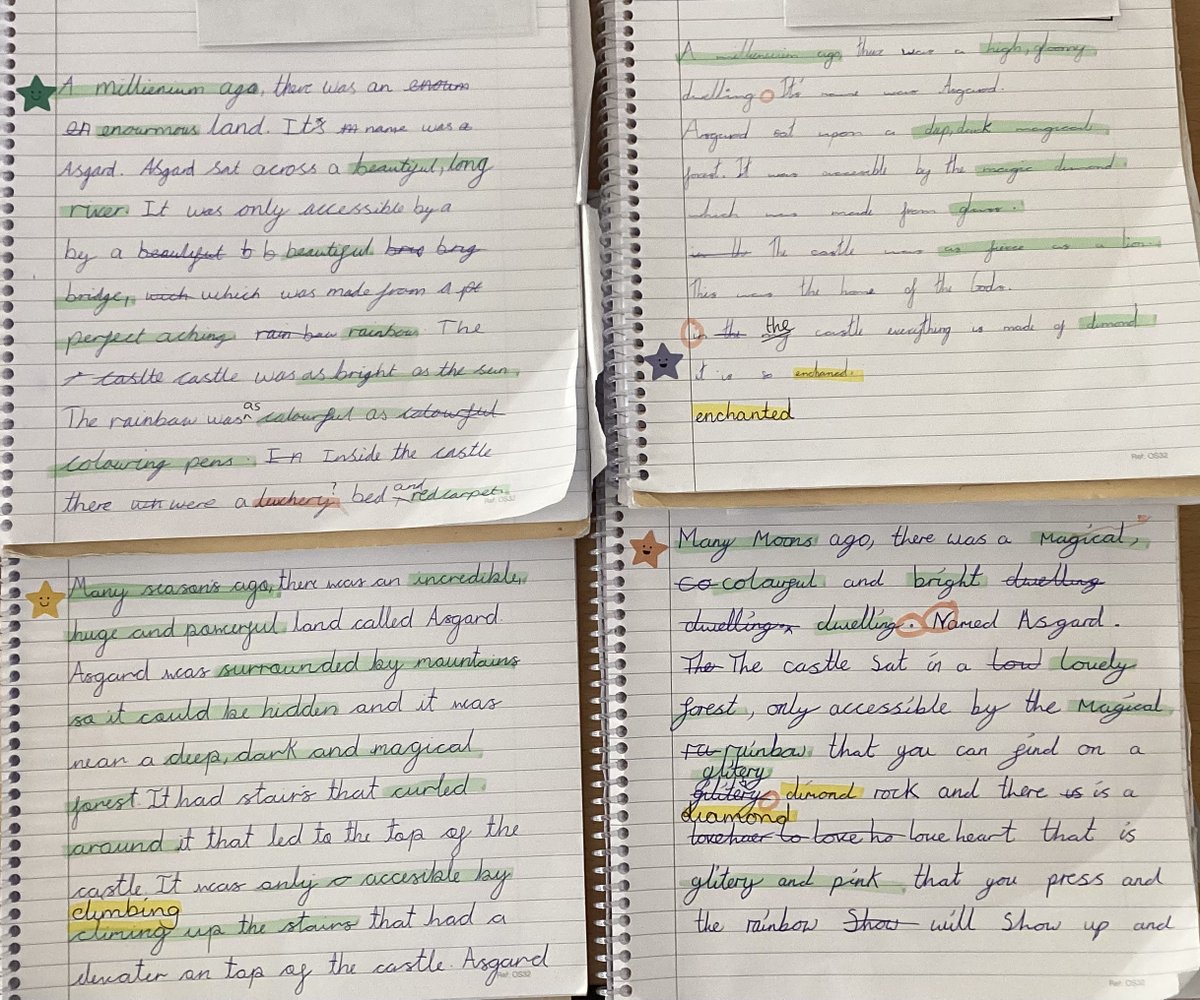 A millienium ago, there was an enoum
en enourmous land. It's m name was a
Asgard. Asgard sat across a beautiful, long
river. It was only accessible by a
by a beauliful b b beautiful brig brig
bridge, wich which was made from a pt
perfect aching rain bow rainbow. The
caslte castle was as bright as the sun.
The rainbow was as colourful as colourful
colouring pens. In Inside the castle
there wh were a luxhery? bed and red carpet.
Ref: OS32
A millenium ago there was a high, gloomy
dwelling. It's name was Asgard.
Asgard sat upon a dep, dark magical
forest. It was accesible by the magic dimond
which was made from glass.
in the The castle was as fierce as a lion.
This was the home of the Gods.
in the the castle everything is made of dimond
it is so enchaned.
enchanted
Ref: OS32
Many seasons ago, there was an incredible,
huge and powerful land called Asgard
Asgard was surrounded by mountains
so it could be hidden and it was
near a deep, dark and magical
forest. It had stairs that curled
around it that led to the top of the
castle. It was only accesible by
climbing
climing up the stairs that had a
elevater on top of the castle. Asgard
Ref: OS32
Many Moons ago, there was a Magical,
Co colourful and bright dwelling
dwelling. dwelling. Named Asgard.
The The castle Sat in a low lovely
forest, only accessible by the Magical
ra rainbow that you can find on a
glitery
glitery dimond rock and there us is a
diamond
to love ho love heart that is
glitery and pink that you press and
the rainbow Show will Show up and
Ref: OS32